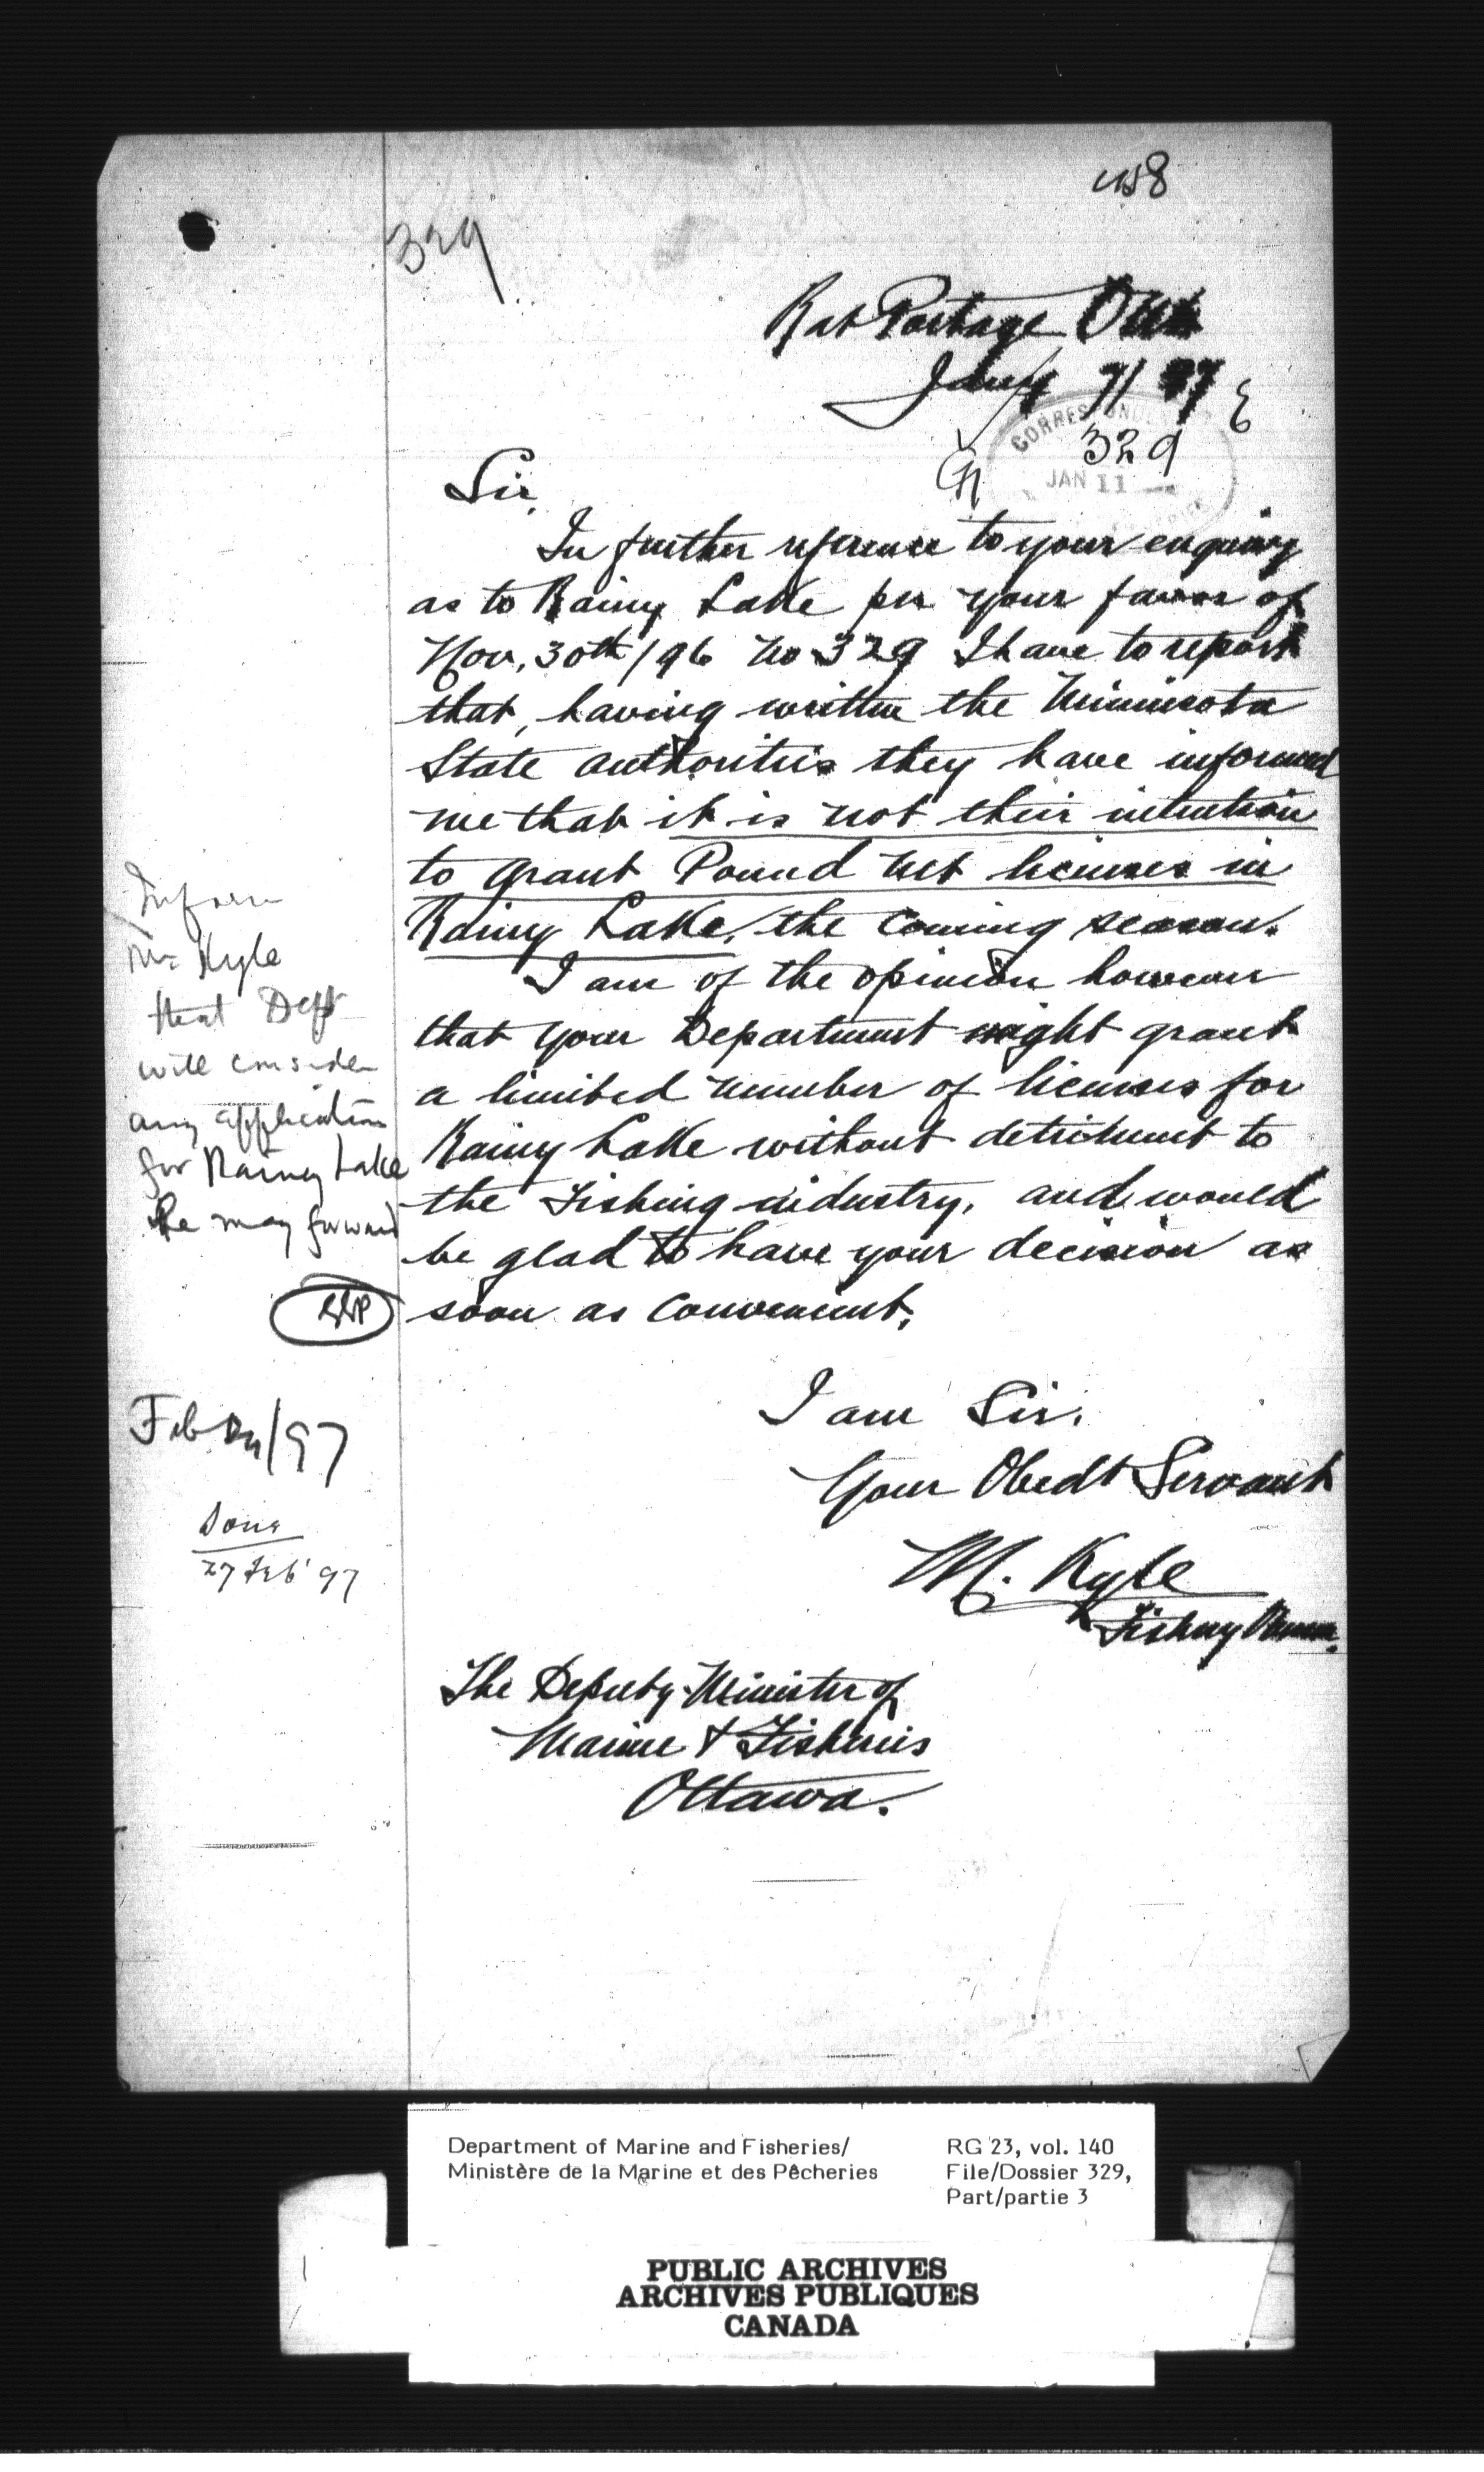 458
329
Rat Portage Ont
Jany 7/97
CORRESPONDENCE
329
JAN 11
Sir,
In further reference to your enquiry
as to Rainy Lake per your favor of
Nov. 30th/96 No 329 I have to report
that, having written the Minnesota
State authorities they have informed
me that it is not their intention
to grant Pound net licenses in
Rainy Lake, the coming season.
I am of the opinion however
that your Department might grant
a limited number of licenses for
Rainy Lake without detriment to
the Fishing industry, and would
be glad to have your decision as
soon as convenient.
I am Sir.
Your Obedt Servant
M. Kyle
Fishery
The Deputy Minister of
Marine & Fisheries
Ottawa.
Inform
Mr Kyle
that Dept
will consider
any application
for Rainy Lake
he may forward
Feb /97
Done
27 Feb '97
Department of Marine and Fisheries/
Ministère de la Marine et des Pêcheries
RG 23, vol. 140
File/Dossier 329,
Part/partie 3
PUBLIC ARCHIVES
ARCHIVES PUBLIQUES
CANADA